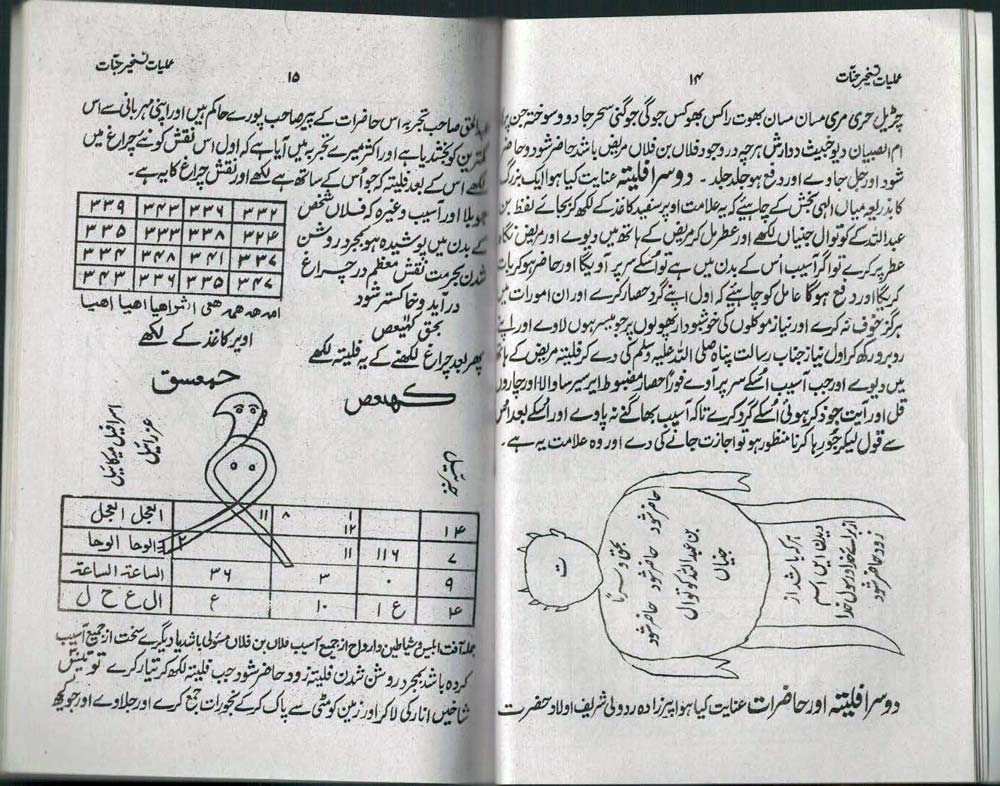 عملیات تسخیر جنات
۱۴
چڑیل حری مری مسان مسان بھوت راکس بھوکس جوگی جوگنی سحر جادو و سوختہ جن پر
ام الصبیان دیو خبیث ددارش ہرچہ در وجود فلاں بن فلاں مریض باشد حاضر شود و حاضر
شود اور جل جاوے اور دفع ہو جلد جلد۔ دوسرا فلیتہ عنایت کیا ہوا ایک بزرگ
کا بذریعہ میاں الٰہی بخش کے چاہئے کہ یہ علامت اوپر سفید کاغذ کے لکھ کر بجائے لفظ بن
عبداللہ کے کوتوال جنیاں لکھے اور عطر مل کر مریض کے ہاتھ میں دیوے اور مریض نگاہ
عطر پر کرے تو اگر آسیب اس کے بدن میں ہے تو اسکے سر پر آویگا اور حاضر ہو کر بات
کریگا اور دفع ہوگا عامل کو چاہیئے کہ اول اپنے گرد حصار کرے اور ان امورات میں
ہرگز خوف نہ کرے اور نیاز موکلوں کی خوشبودار پھولوں پر جو میسر ہوں لاوے اور اپنے
روبرو رکھ کر اول نیاز جناب رسالت پناہ صلی اللہ علیہ وسلم کی دے کر فلیتہ مریض کے ہاتھ
میں دیوے اور جب آسیب اسکے سر پر آوے فوراً حصار مضبوط
قل اور آیت جو ذکر ہوئی اسکے گرد کرے تاکہ آسیب بھاگنے نہ پاوے اور اسکے بعد اس
سے قول لیکر جو رہا کرنا منظور ہو تو اجازت جانے کی دے اور وہ علامت یہ ہے۔
ت
بحق
حاضر شود حاضر شود حاضر شود
بن عبداللہ کوتوال
جنیاں
ہر کہ باشد از
دیدن ایں اسم
از برائے خدا و رسول خدا
زود حاضر شود
دوسرا فلیتہ اور حاضرات عنایت کیا ہوا پیر زادہ ردولی شریف اولاد حضرت
عملیات تسخیر جنات
۱۵
عبدالحق صاحب تجربہ اس حاضرات کے پیر صاحب پورے حاکم ہیں اور اپنی مہربانی سے اس
کمترین کو بخشدیا ہے اور اکثر میرے تجربہ میں آیا ہے کہ اول اس نقش کو نئے چراغ میں
لکھے اس کے بعد فلیتہ کہ جو اس کے ساتھ ہے لکھے اور نقش چراغ کا یہ ہے۔
۳۳۹ ۳۴۳ ۳۳۶ ۳۳۲
۳۳۵ ۳۳۳ ۳۳۸ ۳۲۴
۳۳۴ ۳۴۸ ۳۴۱ ۳۳۷
۳۴۳ ۳۳۶ ۳۳۵ ۳۴۷
اھیا اھیا
اوپر کاغذ کے لکھے
بلا اور آسیب وغیرہ کہ فلاں شخص
کے بدن میں پوشیدہ ہو بمجرد روشن
شدن بحرمت نقش معظم در چراغ
در آید و خاکستر شود
بحق کہیعص
پھر بعد چراغ لکھنے کے یہ فلیتہ لکھے
حمعسق
کہیعص
اسرافیل میکائیل
عزرائیل
جبرئیل
العجل العجل ۱۱ ۸ ۱ ۱۲ ۱۴
الوحا الوحا ۲ ۱۱ ۱۱۶ ۷
الساعة الساعة ۳۶ ۳ ۰ ۹
ال ع ح ل ع ۱۰ ع ۱ ۴
جملہ آفت ابلیس و شیاطین و ارواح از جمیع آسیب فلاں بن فلاں مستولی باشد یا دیگرے سخت از جمیع آسیب
کردہ باشد بمجرد روشن شدن فلیتہ زود حاضر شود جب فلیتہ لکھ کر تیار کرے تو تین
شاخیں انار کی لا کر اور زمین کو مٹی سے پاک کر کے بخورات جمع کرے اور جلاوے اور جو کچھ